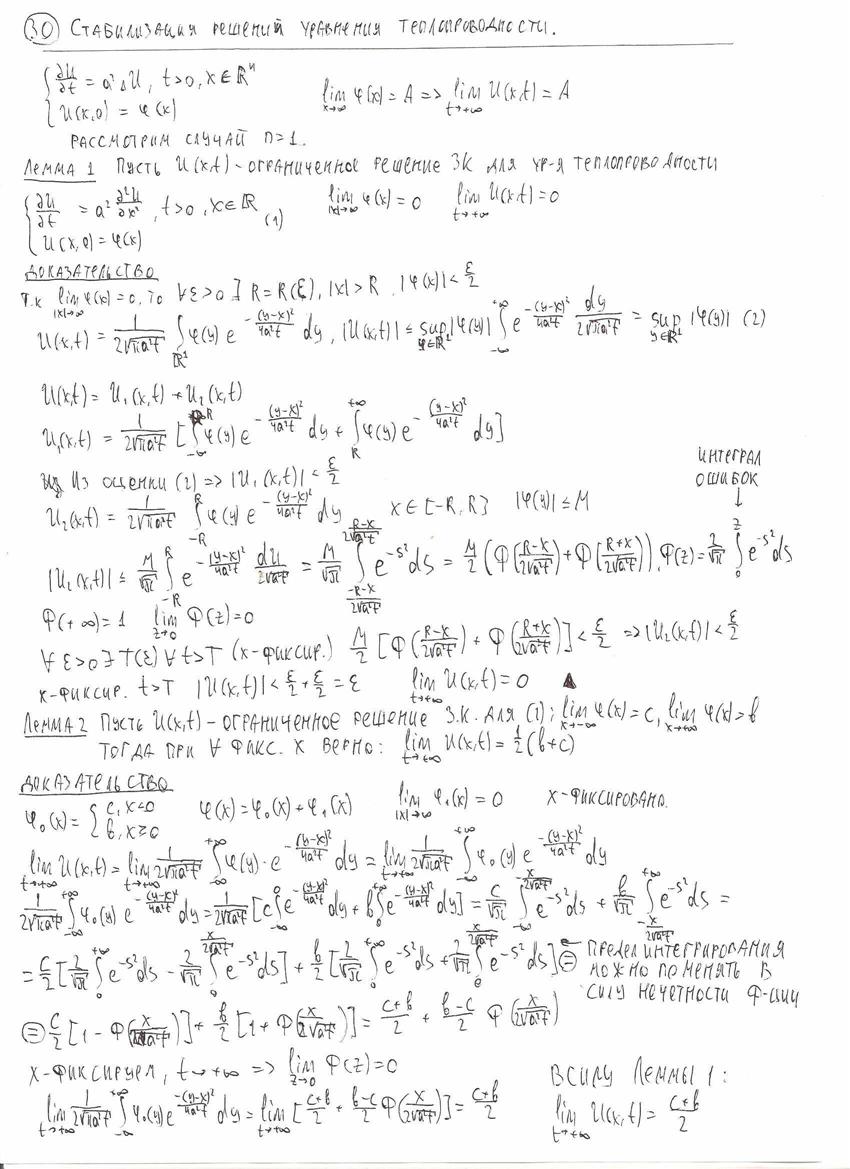 30 СТАБИЛИЗАЦИЯ РЕШЕНИЙ УРАВНЕНИЯ ТЕПЛОПРОВОДНОСТИ.
{ ∂U/∂t = a²ΔU, t>0, x∈ℝⁿ
{ U(x,0) = φ(x)   lim_{x→∞} φ(x) = A => lim_{t→+∞} U(x,t) = A
РАССМОТРИМ СЛУЧАЙ n=1.
ЛЕММА 1 ПУСТЬ U(x,t) - ОГРАНИЧЕННОЕ РЕШЕНИЕ ЗК ДЛЯ УР-Я ТЕПЛОПРОВОДНОСТИ
{ ∂U/∂t = a² ∂²U/∂x², t>0, x∈ℝ (1)   lim_{|x|→∞} φ(x) = 0   lim_{t→+∞} U(x,t) = 0
{ U(x,0) = φ(x)
ДОКАЗАТЕЛЬСТВО
Т.К lim_{|x|→∞} φ(x) = 0, ТО ∀ε>0 ∃ R=R(ε), |x|>R, |φ(x)| < ε/2
U(x,t) = 1/(2√(πa²t)) ∫_{ℝ¹} φ(y) e^{-(y-x)²/(4a²t)} dy, |U(x,t)| ≤ sup_{y∈ℝ¹} |φ(y)| ∫_{-∞}^{+∞} e^{-(y-x)²/(4a²t)} dy/(2√(πa²t)) = sup_{y∈ℝ¹} |φ(y)| (2)
U(x,t) = U₁(x,t) + U₂(x,t)
U₁(x,t) = 1/(2√(πa²t)) [∫_{-∞}^{-R} φ(y) e^{-(y-x)²/(4a²t)} dy + ∫_{R}^{+∞} φ(y) e^{-(y-x)²/(4a²t)} dy]
ИЗ ОЦЕНКИ (2) => |U₁(x,t)| < ε/2
ИНТЕГРАЛ
ОШИБОК
↓
U₂(x,t) = 1/(2√(πa²t)) ∫_{-R}^{R} φ(y) e^{-(y-x)²/(4a²t)} dy   x∈[-R,R]   |φ(y)| ≤ M
|U₂(x,t)| ≤ M/√π ∫_{-R}^{R} e^{-(y-x)²/(4a²t)} dy/(2√(a²t)) = M/√π ∫_{(-R-x)/(2√(a²t))}^{(R-x)/(2√(a²t))} e^{-s²} ds = M/2 (Φ((R-x)/(2√(a²t))) + Φ((R+x)/(2√(a²t)))), Φ(z) = 2/√π ∫_0^z e^{-s²} ds
Φ(+∞) = 1   lim_{z→0} Φ(z) = 0
∀ε>0 ∃T(ε) ∀t>T (x-ФИКСИР.)   M/2 [Φ((R-x)/(2√(a²t))) + Φ((R+x)/(2√(a²t)))] < ε/2 => |U₂(x,t)| < ε/2
x-ФИКСИР. t>T   |U(x,t)| < ε/2 + ε/2 = ε   lim_{t→+∞} U(x,t) = 0   ▲
ЛЕММА 2 ПУСТЬ U(x,t) - ОГРАНИЧЕННОЕ РЕШЕНИЕ З.К. ДЛЯ (1); lim_{x→-∞} φ(x) = c, lim_{x→+∞} φ(x) = b
ТОГДА ПРИ ∀ ФИКС. x ВЕРНО: lim_{t→+∞} U(x,t) = 1/2 (b+c)
ДОКАЗАТЕЛЬСТВО
φ₀(x) = { c, x<0
{ b, x≥0   φ(x) = φ₀(x) + φ₁(x)   lim_{|x|→∞} φ₁(x) = 0   x-ФИКСИРОВАНО.
lim_{t→+∞} U(x,t) = lim_{t→+∞} 1/(2√(πa²t)) ∫_{-∞}^{+∞} φ(y)·e^{-(y-x)²/(4a²t)} dy = lim_{t→+∞} 1/(2√(πa²t)) ∫_{-∞}^{+∞} φ₀(y) e^{-(y-x)²/(4a²t)} dy
1/(2√(πa²t)) ∫_{-∞}^{+∞} φ₀(y) e^{-(y-x)²/(4a²t)} dy = 1/(2√(πa²t)) [c∫_{-∞}^{0} e^{-(y-x)²/(4a²t)} dy + b∫_{0}^{+∞} e^{-(y-x)²/(4a²t)} dy] = c/√π ∫_{-∞}^{-x/(2√(a²t))} e^{-s²} ds + b/√π ∫_{-x/(2√(a²t))}^{+∞} e^{-s²} ds =
= c/2 [2/√π ∫_0^{+∞} e^{-s²} ds - 2/√π ∫_0^{x/(2√(a²t))} e^{-s²} ds] + b/2 [2/√π ∫_0^{+∞} e^{-s²} ds + 2/√π ∫_0^{x/(2√(a²t))} e^{-s²} ds] ⊜ ← ПРЕДЕЛ ИНТЕГРИРОВАНИЯ
МОЖНО ПОМЕНЯТЬ В
СИЛУ НЕЧЕТНОСТИ Ф-ЦИИ
⊜ c/2 [1 - Φ(x/(2√(a²t)))] + b/2 [1 + Φ(x/(2√(a²t)))] = (c+b)/2 + (b-c)/2 Φ(x/(2√(a²t)))
x-ФИКСИРУЕМ, t→+∞ => lim_{z→0} Φ(z) = 0   В СИЛУ ЛЕММЫ 1:
lim_{t→+∞} 1/(2√(πa²t)) ∫_{-∞}^{+∞} φ₀(y) e^{-(y-x)²/(4a²t)} dy = lim_{t→+∞} [(c+b)/2 + (b-c)/2 Φ(x/(2√(a²t)))] = (c+b)/2   lim_{t→+∞} U(x,t) = (c+b)/2